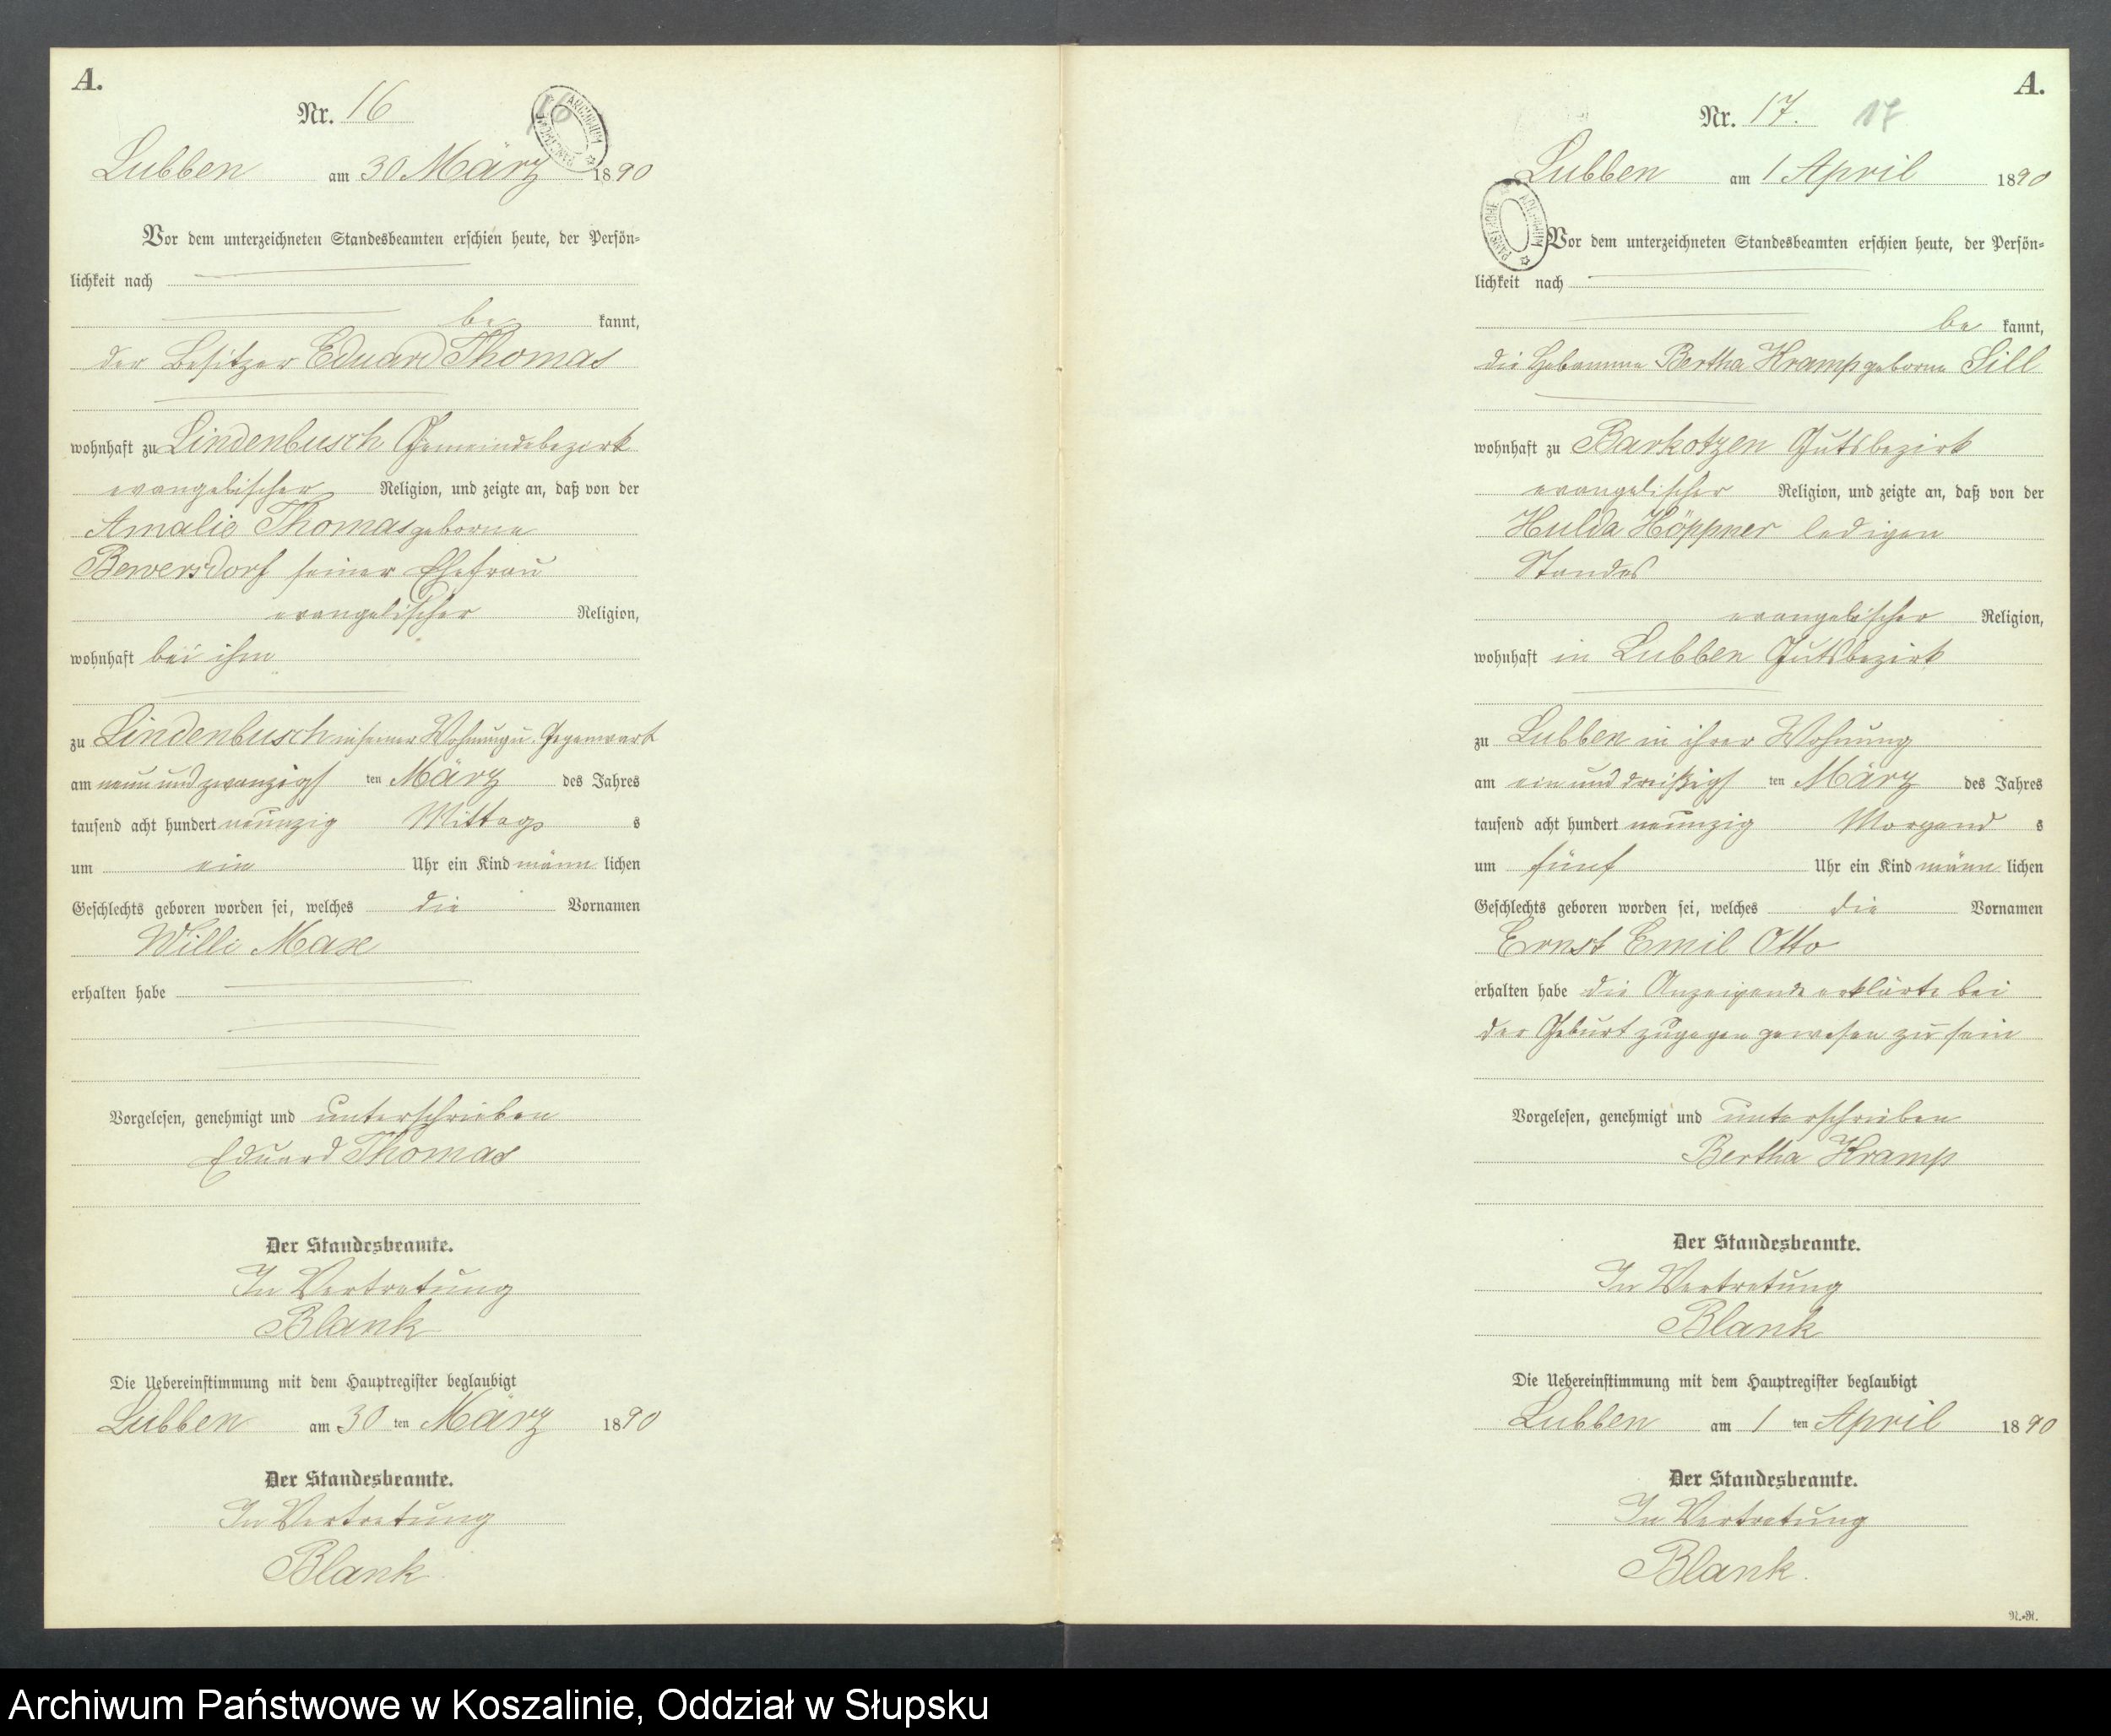 A.
Nr. 16
16
ARCHIWUM PAŃSTWOWE
Lubben am 30 März 1890
Vor dem unterzeichneten Standesbeamten erschien heute, der Persön=
lichkeit nach
be kannt,
der Besitzer Eduard Thomas
wohnhaft zu Lindenbusch Gemeindebezirk
evangelischer Religion, und zeigte an, daß von der
Amalie Thomas geborne
Bewersdorf seiner Ehefrau
evangelischer Religion,
wohnhaft bei ihm
zu Lindenbusch in seiner Wohnung u. Gegenwart
am neun und zwanzigs ten März des Jahres
tausend acht hundert neunzig Mittags s
um ein Uhr ein Kind männ lichen
Geschlechts geboren worden sei, welches die Vornamen
Willi Max
erhalten habe
Vorgelesen, genehmigt und unterschrieben
Eduard Thomas
Der Standesbeamte.
In Vertretung
Blank
Die Uebereinstimmung mit dem Hauptregister beglaubigt
Lubben am 30 ten März 1890
Der Standesbeamte.
In Vertretung
Blank
A.
Nr. 17. 17
Lubben am 1 April 1890
Vor dem unterzeichneten Standesbeamten erschien heute, der Persön=
lichkeit nach
be kannt,
die Hebamme Bertha Kramp geborne Sill
wohnhaft zu Barkotzen Gutsbezirk
evangelischer Religion, und zeigte an, daß von der
Hulda Höppner ledigen
Standes
evangelischer Religion,
wohnhaft in Lubben Gutsbezirk
zu Lubben in ihrer Wohnung
am ein und dreißigs ten März des Jahres
tausend acht hundert neunzig Morgend s
um fünf Uhr ein Kind männ lichen
Geschlechts geboren worden sei, welches die Vornamen
Ernst Emil Otto
erhalten habe die Anzeigende erklärte bei
der Geburt zugegen gewesen zu sein
Vorgelesen, genehmigt und unterschrieben
Bertha Kramp
Der Standesbeamte.
In Vertretung
Blank
Die Uebereinstimmung mit dem Hauptregister beglaubigt
Lubben am 1 ten April 1890
Der Standesbeamte.
In Vertretung
Blank.
N.=R.
Archiwum Państwowe w Koszalinie, Oddział w Słupsku